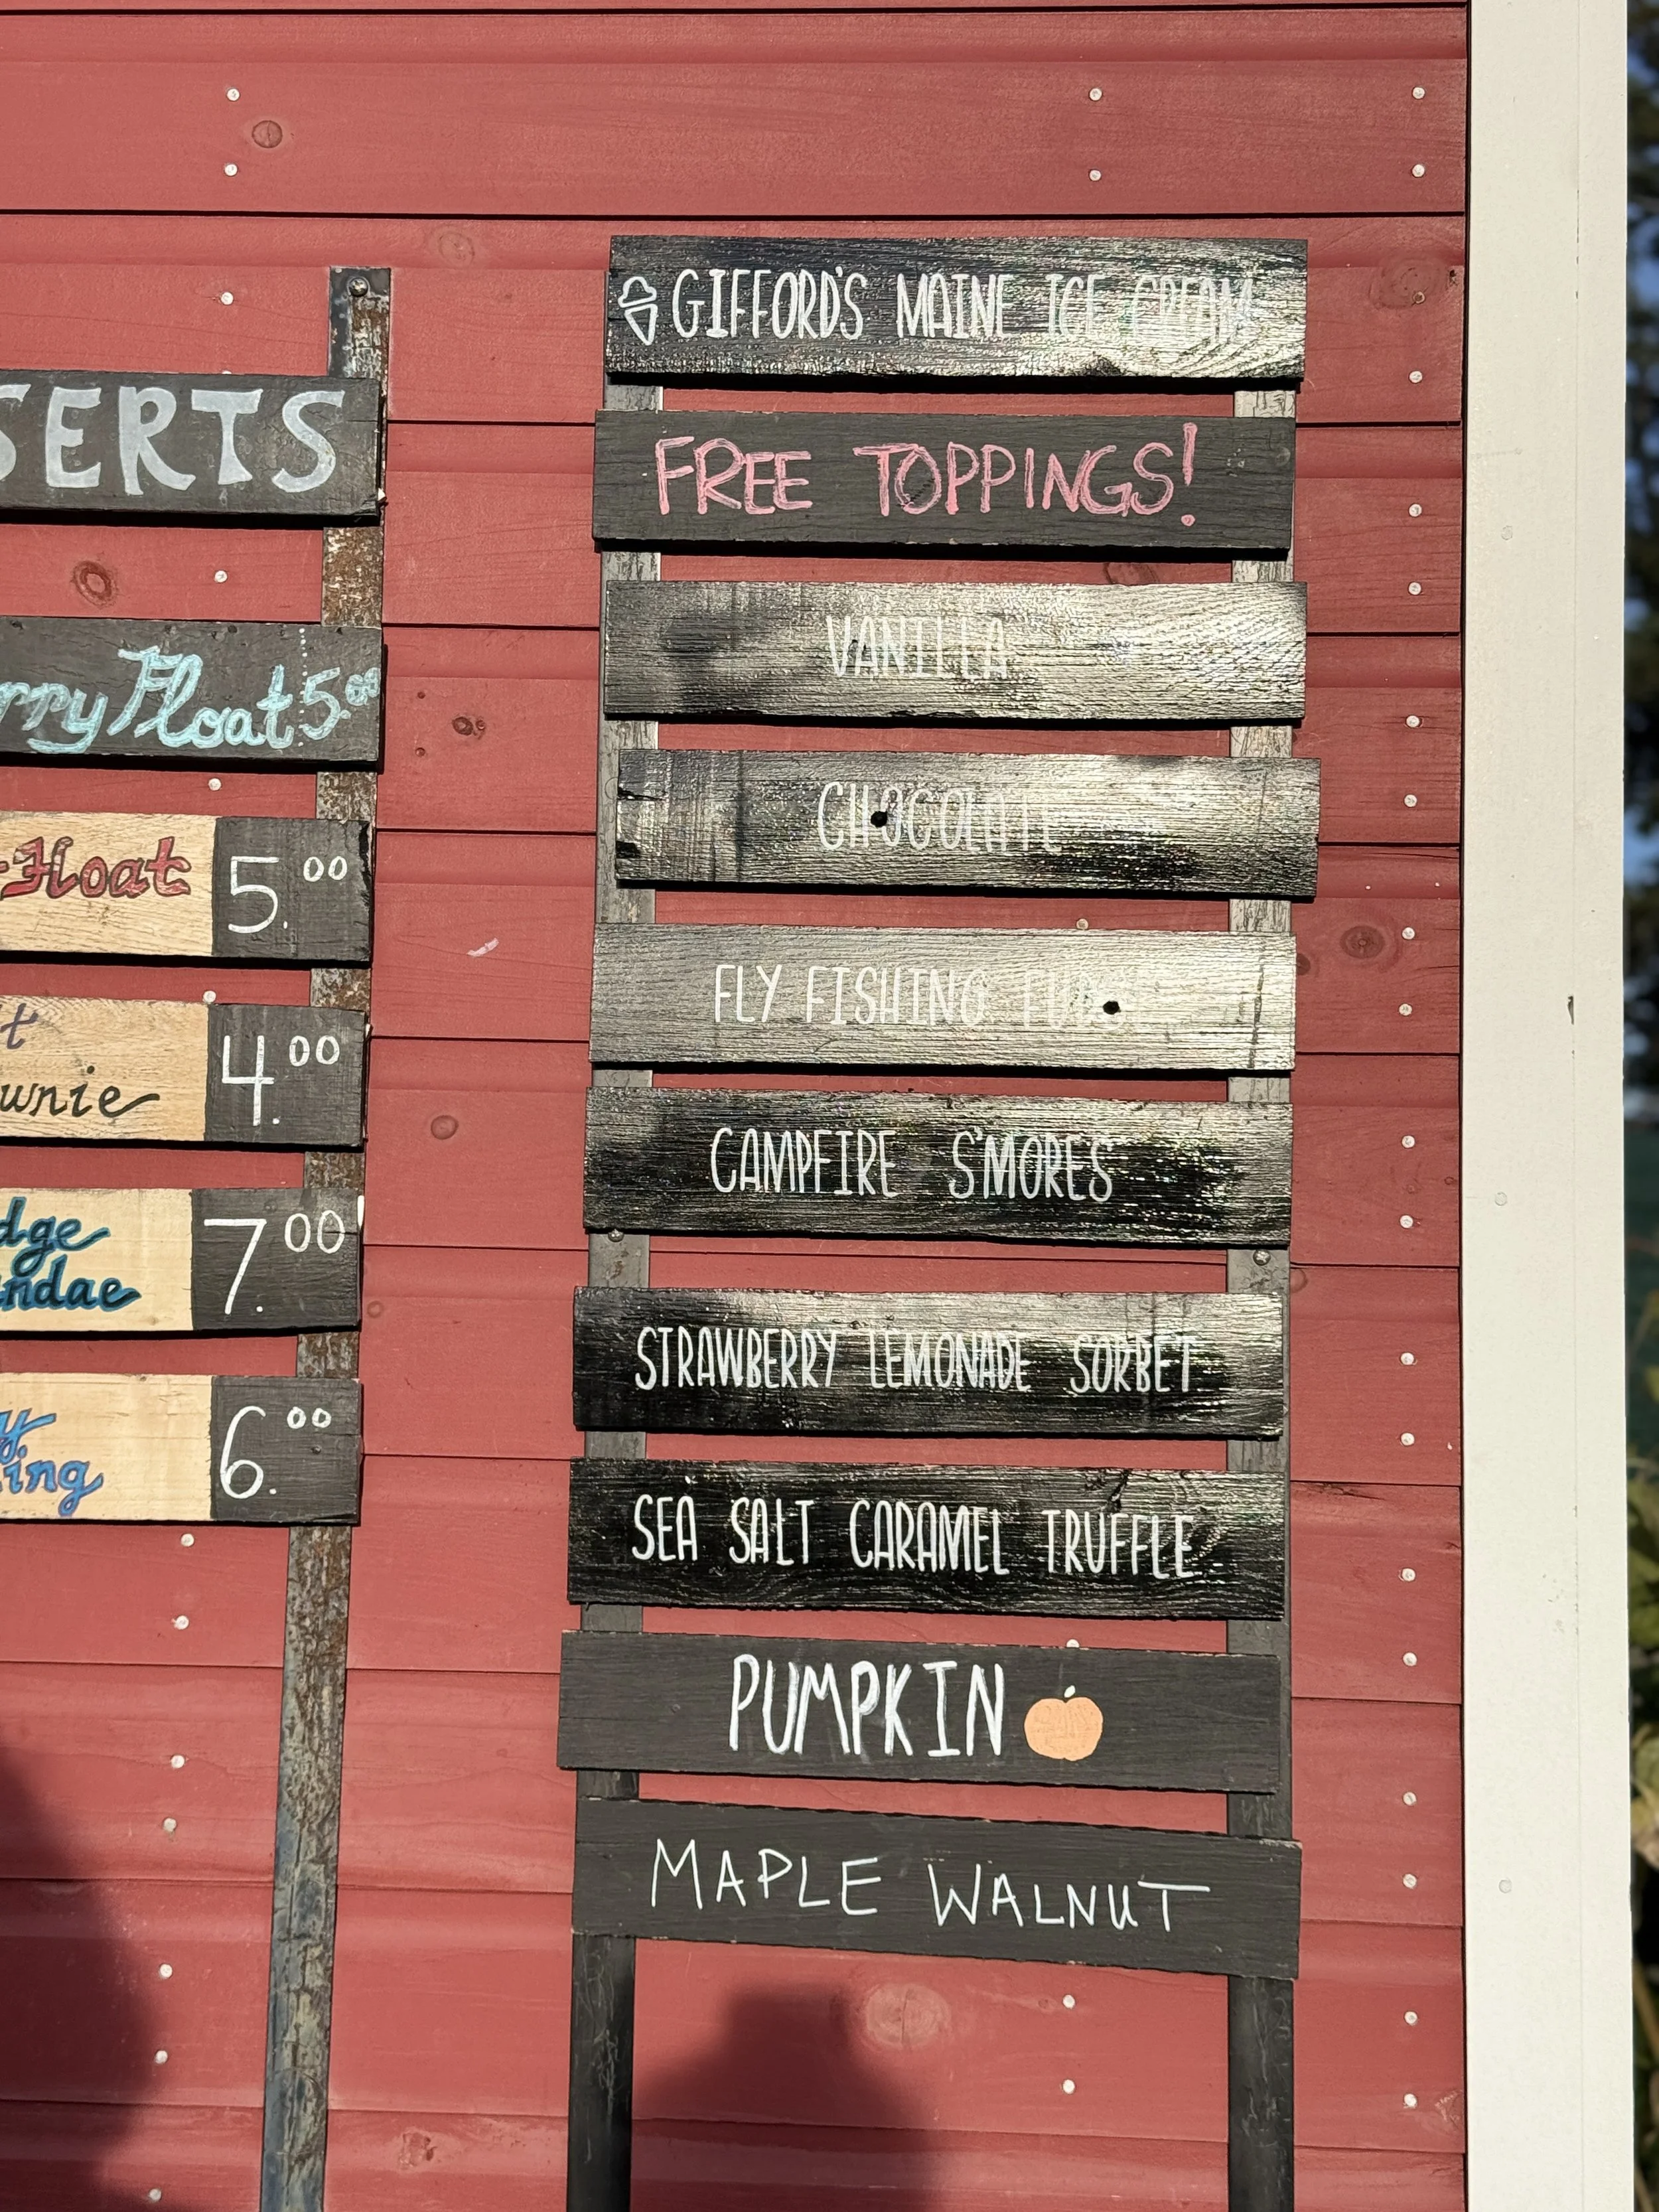 SERTS
rry Float 5.00
Float 5.00
t
wnie 4.00
dge
ndae 7.00
y
ing 6.00
GIFFORD'S MAINE ICE CREAM
FREE TOPPINGS!
VANILLA
CHOCOLATE
FLY FISHING FUDGE
CAMPFIRE S'MORES
STRAWBERRY LEMONADE SORBET
SEA SALT CARAMEL TRUFFLE
PUMPKIN
MAPLE WALNUT